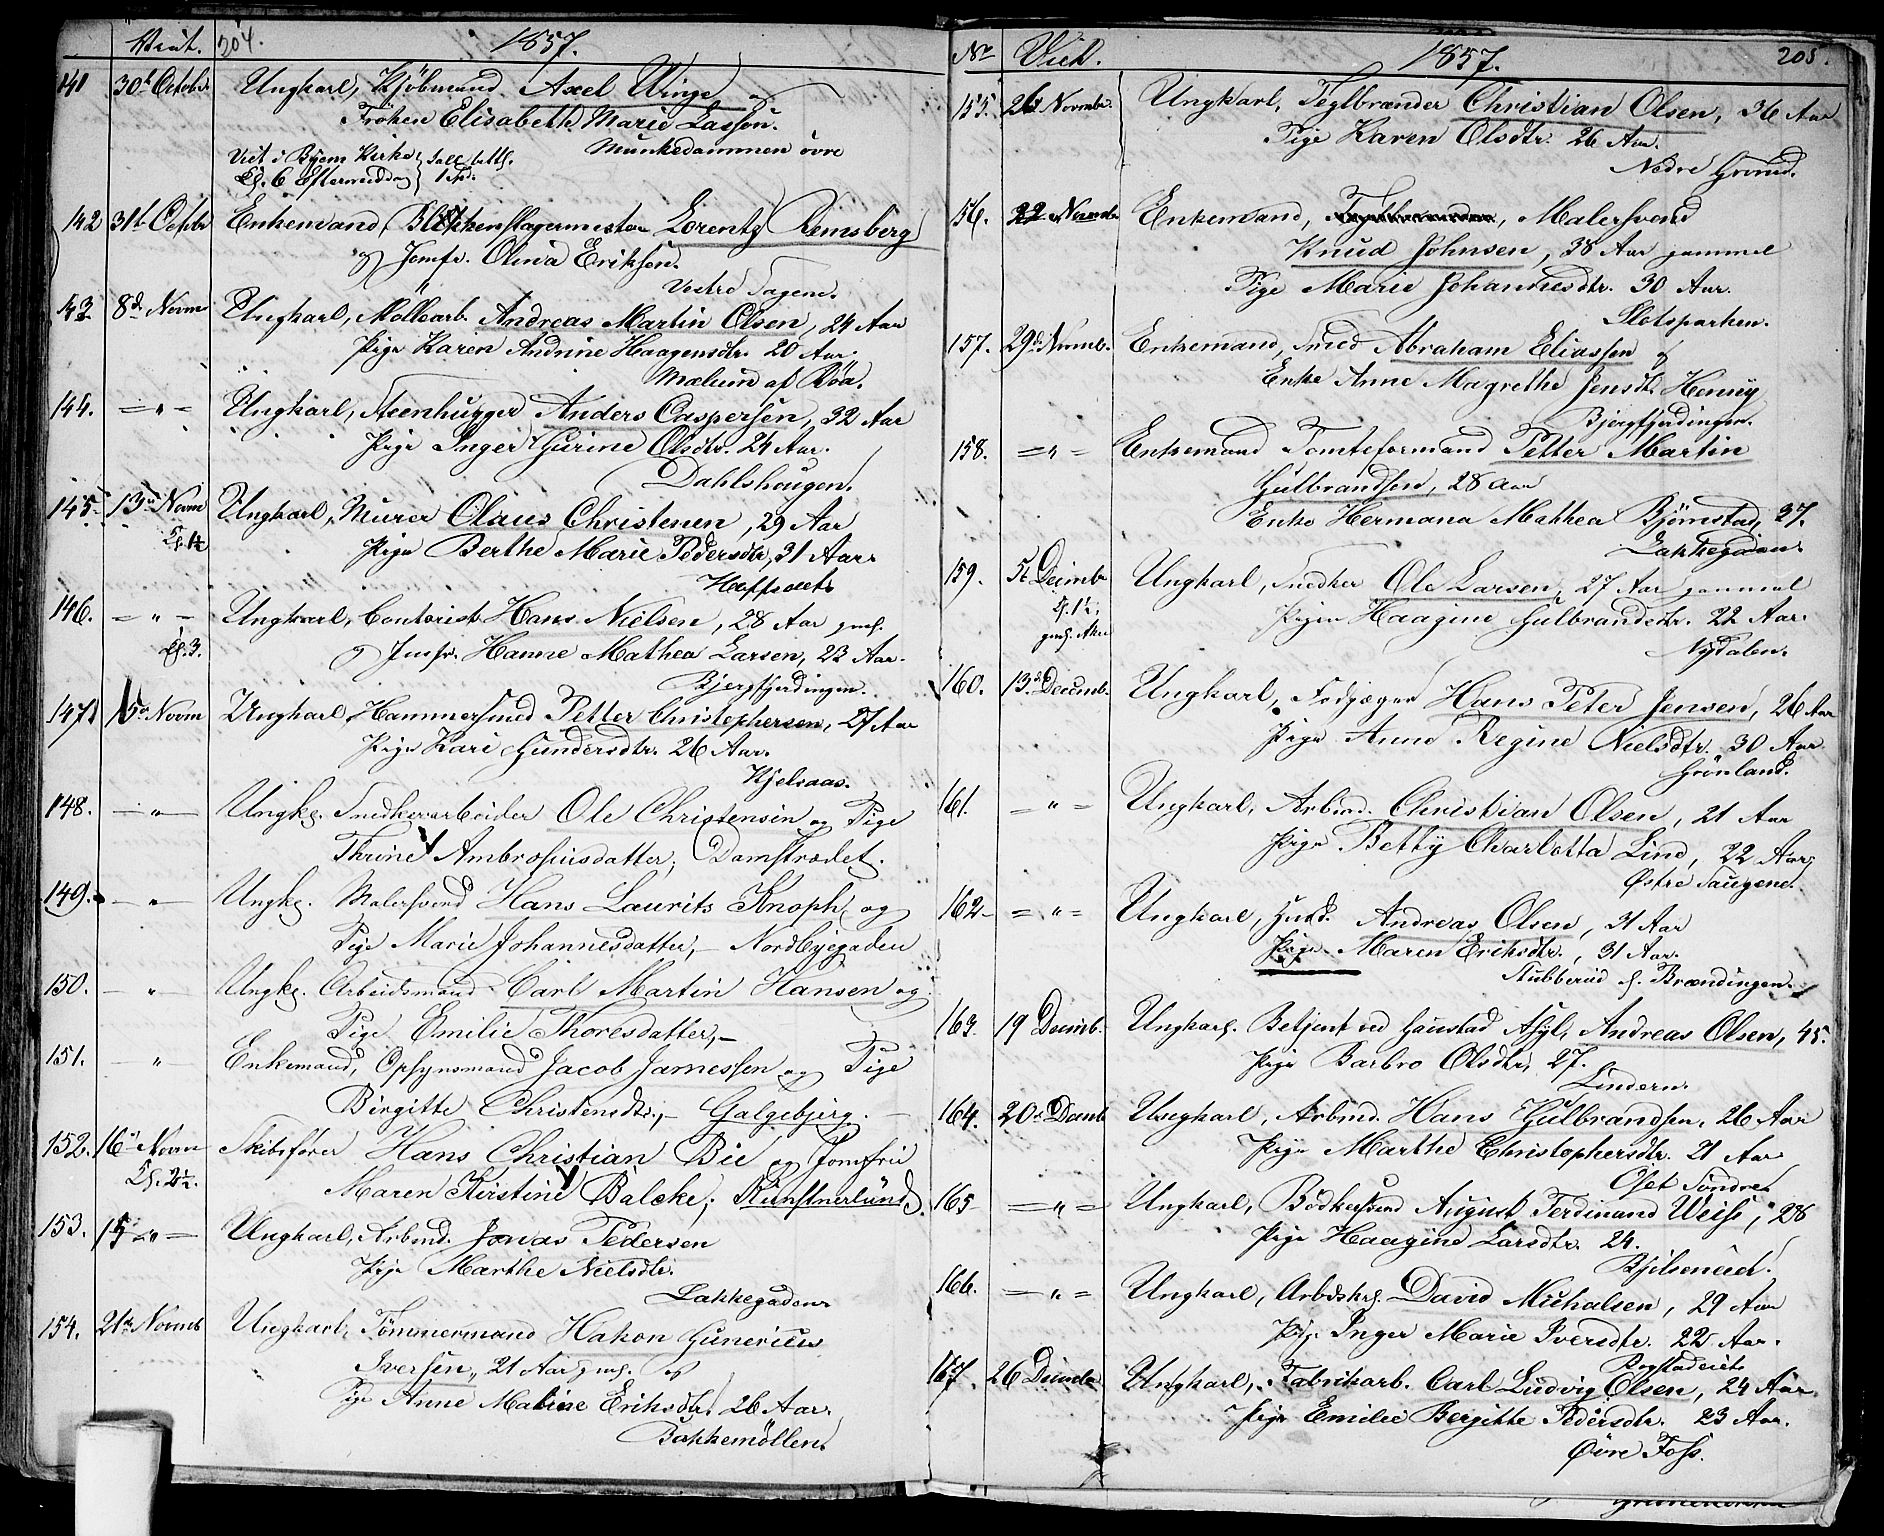 Viet. 204. 1857.
141 30t Octobr. Ungkarl, Kjöbmand Axel Winge og
Fröken Elisabeth Marie Lasson.
Munkedammen övre
Viet i Byens Kirke
Kl. 6 Eftermiddag
142 31t Octbr Enkemand, Blikkenslagermester Lorentz Remsberg
og Jomfr. Olivia Eriksen.
Vestre Sagene.
43. 8de Novm Ungkarl, Möllearb. Andreas Martin Olsen, 24 Aar
Pige Karen Andrine Haagensdtr. 20 Aar,
Mælum af Röa.
144. — " — Ungkarl, Steenhugger Anders Caspersen, 32 Aar
Pige Inger Gurine Olsdtr. 24 Aar.
Dahlshougen.
145 13de Novm Ungkarl, Murer Olaus Christensen, 29 Aar
Kl. 1½ Pige Berthe Marie Pedersdtr, 31 Aar.
146. — " — Ungkarl, Contorist Hans Nielsen, 28 Aar gml.
Kl. 3. og Jomfr. Hanne Mathea Larsen, 23 Aar.
Bjergfjerdingen.
147 15de Novm Ungkarl, Hammersmed Petter Christophersen, 27 Aar
Pige Kari Gundersdtr. 26 Aar.
Kjelsaas.
148. — " — Ungk. Snedkerarbeider Ole Christensen og Pige
Thrine Ambrosiusdatter, Damstrædet.
149. — " — Ungk. Malersvend Hans Laurits Knoph og
Pige Marie Johannesdatter, — Nordbyegaden
150. — " Ungk. Arbeidsmand Carl Martin Hansen og
Pige Emilie Thoresdatter, —
151. — " Enkemand, Opsynsmand Jacob Jamessen og Pige
Birgitte Christensdtr, — Galgebjerg.
152. 16de Novm Skibsfører Hans Christian Bie og Jomfru
Kl. 2½. Maren Kirstine Balcke, Kunstnerlund.
153. 15 — " — Ungkarl, Arbmd. Jonas Pedersen
Pige Marthe Nielsdtr.
Lakkegaden
154. 21de Novmb Ungkarl, Tömmermand Hakon Gunerius
Iversen, 21 Aar gml. og
Pige Anne Maline Eriksdtr. 26 Aar.
Bakkemöllen.
No Viet. 1857. 205.
155. Novmbr. Ungkarl, Teglbrænder Christian Olsen, 36 Aar
Pige Karen Olsdtr. 26 Aar.
Nedre Grorud.
56. 22 Novmb. Enkemand, Malersvend
Knud Johnsen, 38 Aar gammel
Pige Marie Johannesdtr. 30 Aar.
Slotsparken.
157. 29de Novmb. Enkemand, Smed Abraham Eliassen og
Enke Anne Magrethe Jensdt. Henny
Bjergfjerdingen.
158. — " — Enkemand Tomteformand Petter Martin
Gulbrandsen, 28 Aar
Enke Hermana Mathea Björnstad, 37.
Lakkegaden.
159. 5t Decmbr Ungkarl, Snedker Ole Larsen, 27 Aar gammel
Kl. 1½, Pigen Haagine Gulbrandsdtr. 22 Aar.
Nydalen.
160. 13de Decemb. Ungkarl, Fodjæger Hans Peter Jensen, 26 Aar
Pige Anne Regine Nielsdtr. 30 Aar.
Grönland.
161. — " — Ungkarl, Arbmd. Christian Olsen, 21 Aar
Pige Betty Charlotta Lind, 22 Aar,
Østre Saugene.
162 — " — Ungkarl, Husmd. Andreas Olsen, 31 Aar
Pige Maren Eriksdtr., 31 Aar.
Stubberud Brændingen.
163. 19 Decmb. Ungkarl. Betjent ved Gaustad Asyl, Andreas Olsen, 45.
Pige Barbro Olsdtr, 27.
Lindern.
164. 20de Decmb Ungkarl, Arbmd. Hans Gulbrandsen, 26 Aar
Pige Marthe Christophersdtr. 21 Aar
Oset Söndre
165 — " — Ungkarl, Bödkersvend August Ferdinand Weiss, 28
Pige Haagine Larsdtr. 24.
166. — " — Ungkarl, Arbdskrl. David Michalsen, 29 Aar
Pige Inger Marie Iversdtr. 22 Aar.
Bogstadeiet
167. 26 Decmbr Ungkarl, Fabrikarb. Carl Ludvig Olsen, 24 Aar.
Pige Emilie Bergitte Pedersdtr. 23 Aar.
Övre Foss.